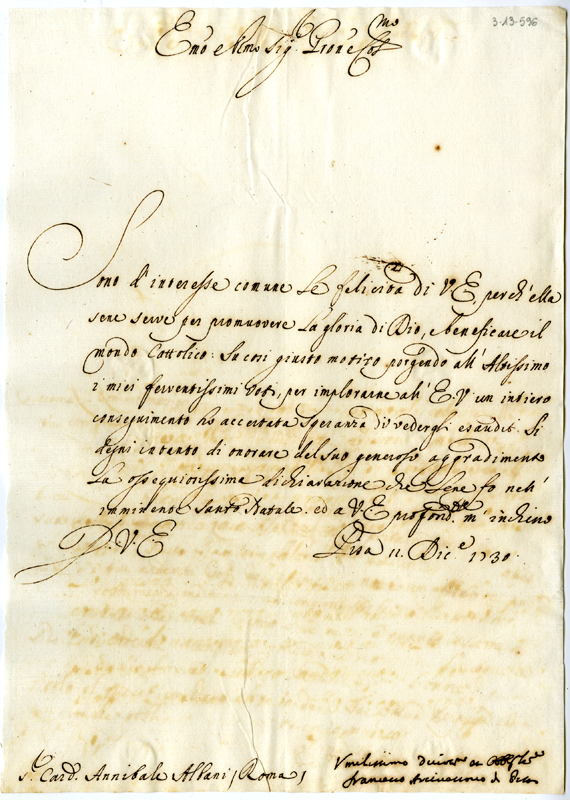 3-13-596
Em.o e Rmo Sig.r Prone Col.mo
Sono d'interesse comune Le felicità di V.E. perch'ella
sene serve per promuovere La gloria di Dio, e beneficare il
mondo Cattolico. Su così giusto motivo porgendo all'Altissimo
i miei ferventissimi voti, per implorarne all'E.V. un intiero
conseguimento ho accertata Speranza di vedergli esauditi. Si
degni intanto di onorare del suo generoso aggradimento
La ossequiosissima dichiarazione che Lene fo nell'
imminente Santo Natale. ed a V.E. profond.te m'inchino
D. V. E. Pisa 11. Dic.e 1730.
S.r Card. Annibale Albani / Roma /
Umilissimo
Francesco Arcivescovo di Pisa